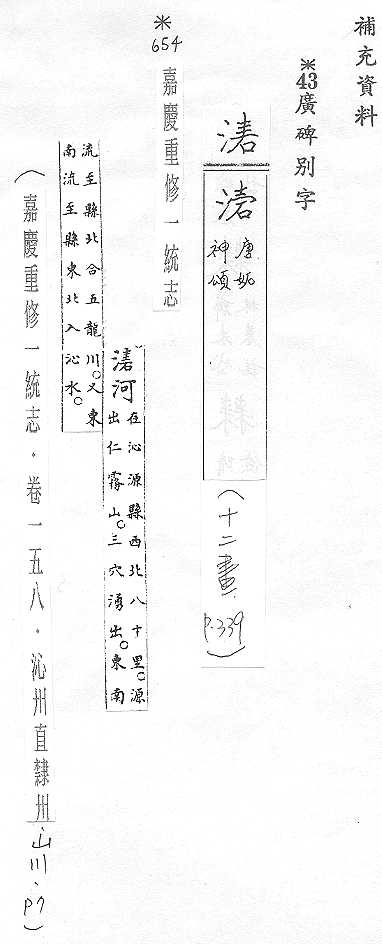 補充資料
*43廣碑別字
唐妬
神頌
(十二畫 P.339)
*654 嘉慶重修一統志
河
在沁源縣西北八十里。源
出仁霧山。三穴湧出。東南
流至縣北合五龍川。又東
南流至縣東北入沁水。
(嘉慶重修一統志·卷一五八·沁州直隸州·山川·P7)